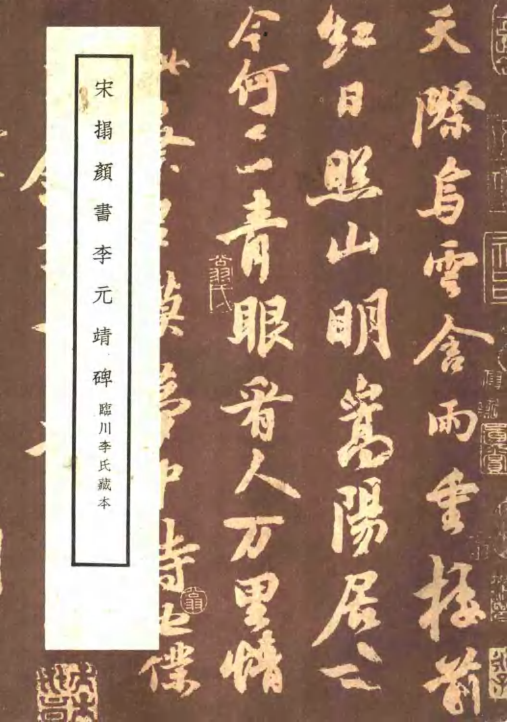 天際烏雲含雨重樓前
紅日照山明嵩陽居士
今何在青眼看人万里情
此蔡君謨夢中詩也僕
宋搨顏書李元靖碑 臨川李氏藏本